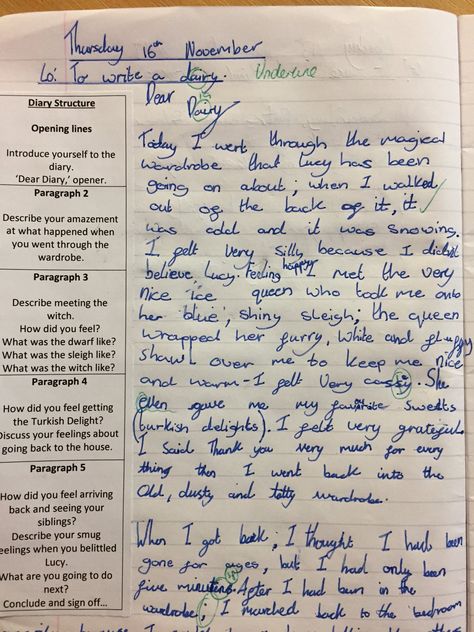 Thursday 16th November
Lo: To write a dairy. Underline
Dear Dairy
Diary Structure
Opening lines
Introduce yourself to the
diary.
'Dear Diary,' opener.
Paragraph 2
Describe your amazement
at what happened when
you went through the
wardrobe.
Paragraph 3
Describe meeting the
witch.
How did you feel?
What was the dwarf like?
What was the sleigh like?
What was the witch like?
Paragraph 4
How did you feel getting
the Turkish Delight?
Discuss your feelings about
going back to the house.
Paragraph 5
How did you feel arriving
back and seeing your
siblings?
Describe your smug
feelings when you belittled
Lucy.
What are you going to do
next?
Conclude and sign off...
Today I went through the magical
wardrobe that Lucy has been
going on about; when I walked
out of the back of it, it
was cold and it was snowing.
I felt very silly because I didn't
believe Lucy. Feeling happy I met the very
nice ice queen who took me onto
her blue, shiny sleigh; the queen
wrapped her furry, white and fluffy
shawl over me to keep me nice
and warm - I felt very . She
even gave me my favourite sweets
(turkish delights). I felt very grateful.
I said Thank you very much for every
thing then I went back into the
old, dusty and tatty wardrobe.
When I got back, I thought I had been
gone for ages, but I had only been
five . After I had been in the
wardrobe, I marched back to the bedroom